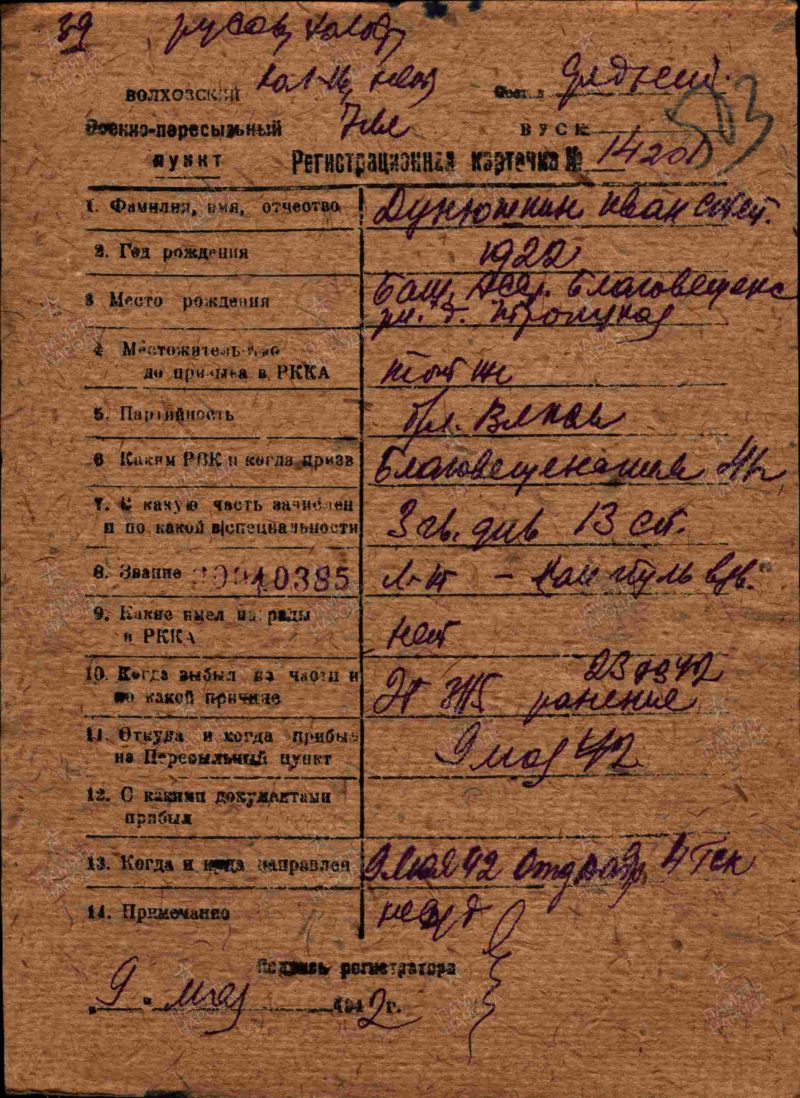 39 русск, холост
ВОЛХОВСКИЙ
Состав
Военно-пересыльный 7 кл ВУС №
пункт Регистрационная карточка № 1420
503
1. Фамилия, имя, отчество Дунюшкин Иван Степ.
2. Год рождения 1922
3 Место рождения Баш. АССР. Благовещенс
рн. д. Троицкая
4 Местожительство
до призыва в РККА тот же
5. Партийность чл. ВЛКСМ
6 Каким РВК и когда призв Благовещенским 41г
7. С какую часть зачислен
и по какой в|специальности 3 гв. див 13 сп.
8. Звание 30940385 л-т - Ком. пуль взв.
9. Какие имел награды
в РККА нет
10. Когда выбыл из части и 23 03 42
по какой причине ЭГ ранение
11. Откуда и когда прибыл
на Пересыльный пункт 9 мая 42
12. С какими документами
прибыл
13. Когда и куда направлен 9 мая 42 Отд кадр 4 Гск
14. Примечание
Подпись регистратора
„9" мая 1942 г.
ПАМЯТЬ НАРОДА